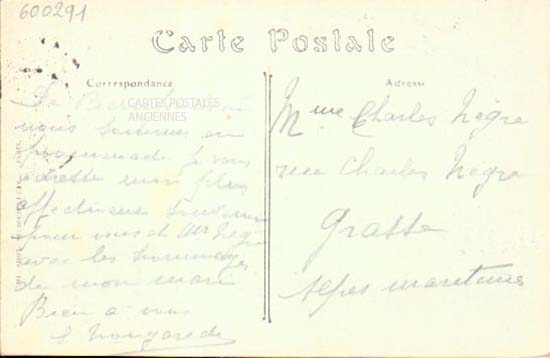 600291
Carte Postale
Correspondance
Adresse
CARTES POSTALES
ANCIENNES
De
nous sommes en
promenade je vous
adresse mon plus
affectueux souvenir
pour vous et Mr Nègre
avec les hommages
de mon mari
Bien à vous
Mme Charles Nègre
rue Charles Nègre
Grasse
Alpes maritimes